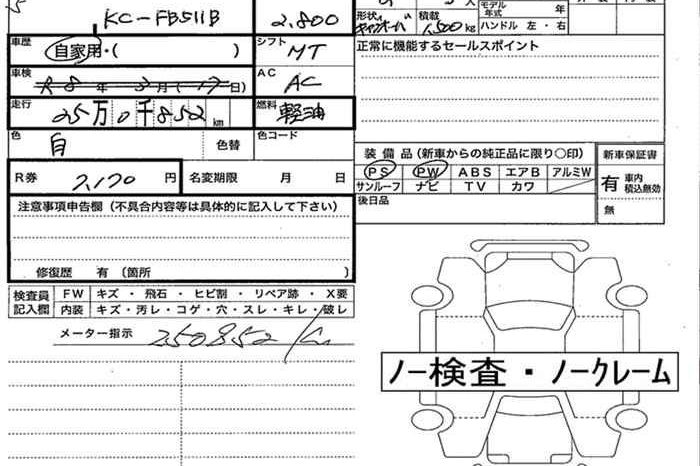 KC-FB511B 2,800
形状 キャブオーバ 積載 1,500kg 人 モデル年式 年
ハンドル 左・右
車歴 自家用・( ) シフト MT
正常に機能するセールスポイント
車検 R8年3月(17日) AC AC
走行 25万0千852km 燃料 軽油
色 白 色替 色コード
装備品(新車からの純正品に限り○印) 新車保証書
R券 2,170円 名変期限 月 日
PS PW ABS エアB アルミW
サンルーフ ナビ TV カワ
有 車内積込無効
無
後日品
注意事項申告欄(不具合内容等は具体的に記入して下さい)
修復歴 有〔箇所 〕
検査員記入欄 FW キズ・飛石・ヒビ割・リペア跡・X要
内装 キズ・汚レ・コゲ・穴・スレ・キレ・破レ
メーター指示 250852Km
ノー検査・ノークレーム